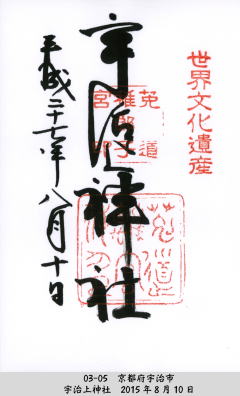 世界文化遺産
宇治上神社
平成二十七年八月十日
菟道稚郎子宮印
03-05　京都府宇治市
宇治上神社　2015年8月10日